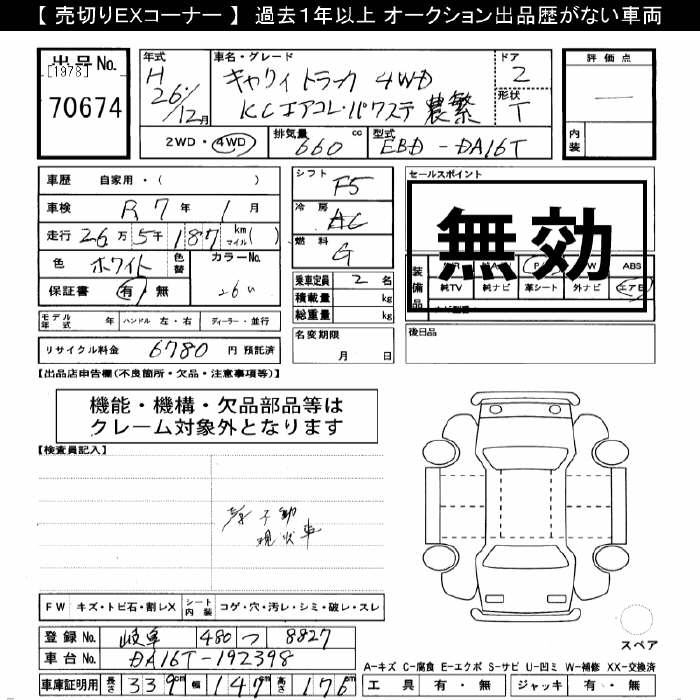 【 売切りEXコーナー 】 過去1年以上 オークション出品歴がない車両
出品No.
[1978]
70674
年式
H
26年
12月
車名・グレード
キャリィ トラック 4WD
KCエアコン・パワステ 農繁
ドア
2
形状
T
2WD・4WD
排気量
660 cc
型式
EBD-DA16T
評価点
―
内装
車歴 自家用・( )
車検 R7年 1月
走行 26万 5千 187 km マイル( )
色 ホワイト 色替 カラーNo. 26U
保証書 有・無
モデル年式 年 ハンドル 左・右 ディーラー・並行
リサイクル料金 6780 円 預託済
シフト F5
冷房 AC
燃料 G
乗車定員 2 名
積載量 kg
総重量 kg
名変期限
月 日
セールスポイント
無効
装備品
ABS
純TV 純ナビ 革シート 外ナビ エアB
後日品
【出品店申告欄(不良箇所・欠品・注意事項等)】
機能・機構・欠品部品等は
クレーム対象外となります
【検査員記入】
現状車
FW キズ・トビ石・割レX シート内装 コゲ・穴・汚レ・シミ・破レ・スレ
登録No. 岐阜 480 つ 8827
車台No. DA16T-192398
車庫証明用 長さ 339cm 幅 147cm 高さ 176cm
スペア
A-キズ C-腐食 E-エクボ S-サビ U-凹ミ W-補修 XX-交換済
工具 有・無 ジャッキ 有・無